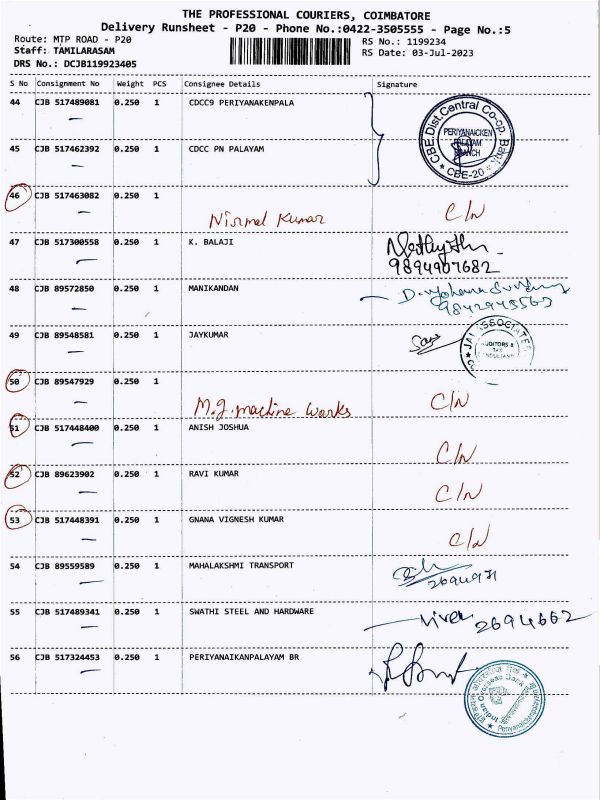 THE PROFESSIONAL COURIERS, COIMBATORE
Delivery Runsheet - P20 - Phone No.:0422-3505555 - Page No.:5
Route: MTP ROAD - P20 RS No.: 1199234
Staff: TAMILARASAM RS Date: 03-Jul-2023
DRS No.: DCJB119923405
S No Consignment No Weight PCS Consignee Details Signature
44 CJB 517489081 0.250 1 CDCC9 PERIYANAKENPALA
CBE.Dist.Central Co-op. Bank
PERIYANAICKEN
PALAYAM
BRANCH
CBE-20
45 CJB 517462392 0.250 1 CDCC PN PALAYAM
46 CJB 517463082 0.250 1
Nirmal Kumar C/N
47 CJB 517300558 0.250 1 K. BALAJI
9894907682
48 CJB 89572850 0.250 1 MANIKANDAN
49 CJB 89548581 0.250 1 JAYKUMAR
ASSOCIATES
AUDITORS &
TAX
CONSULTANTS
50 CJB 89547929 0.250 1
M.J. machine works C/N
51 CJB 517448400 0.250 1 ANISH JOSHUA
C/N
52 CJB 89623902 0.250 1 RAVI KUMAR
C/N
53 CJB 517448391 0.250 1 GNANA VIGNESH KUMAR
C/N
54 CJB 89559589 0.250 1 MAHALAKSHMI TRANSPORT
55 CJB 517489341 0.250 1 SWATHI STEEL AND HARDWARE
2694662
56 CJB 517324453 0.250 1 PERIYANAIKANPALAYAM BR
Indian Overseas Bank